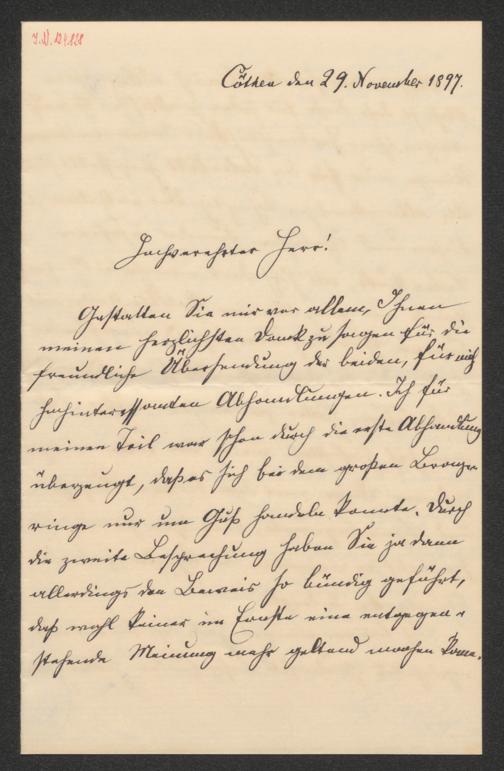 J.N. 124.828
Cöthen den 29. November 1897.
Hochverehrter Herr!
Gestatten Sie mir vor allem, Ihnen
meinen herzlichsten Dank zu sagen für die
freundliche Übersendung der beiden, für mich
hochinteressanten Abhandlungen. Ich für
meinen Teil war schon durch die erste Abhandlung
überzeugt, daß es sich bei dem großen Bronze-
ringe nur um Guß handeln konnte. Durch
die zweite Besprechung haben Sie ja dann
allerdings den Beweis so bündig geführt,
daß wohl keiner im Ernste eine entgegen-
stehende Meinung mehr geltend machen kann.